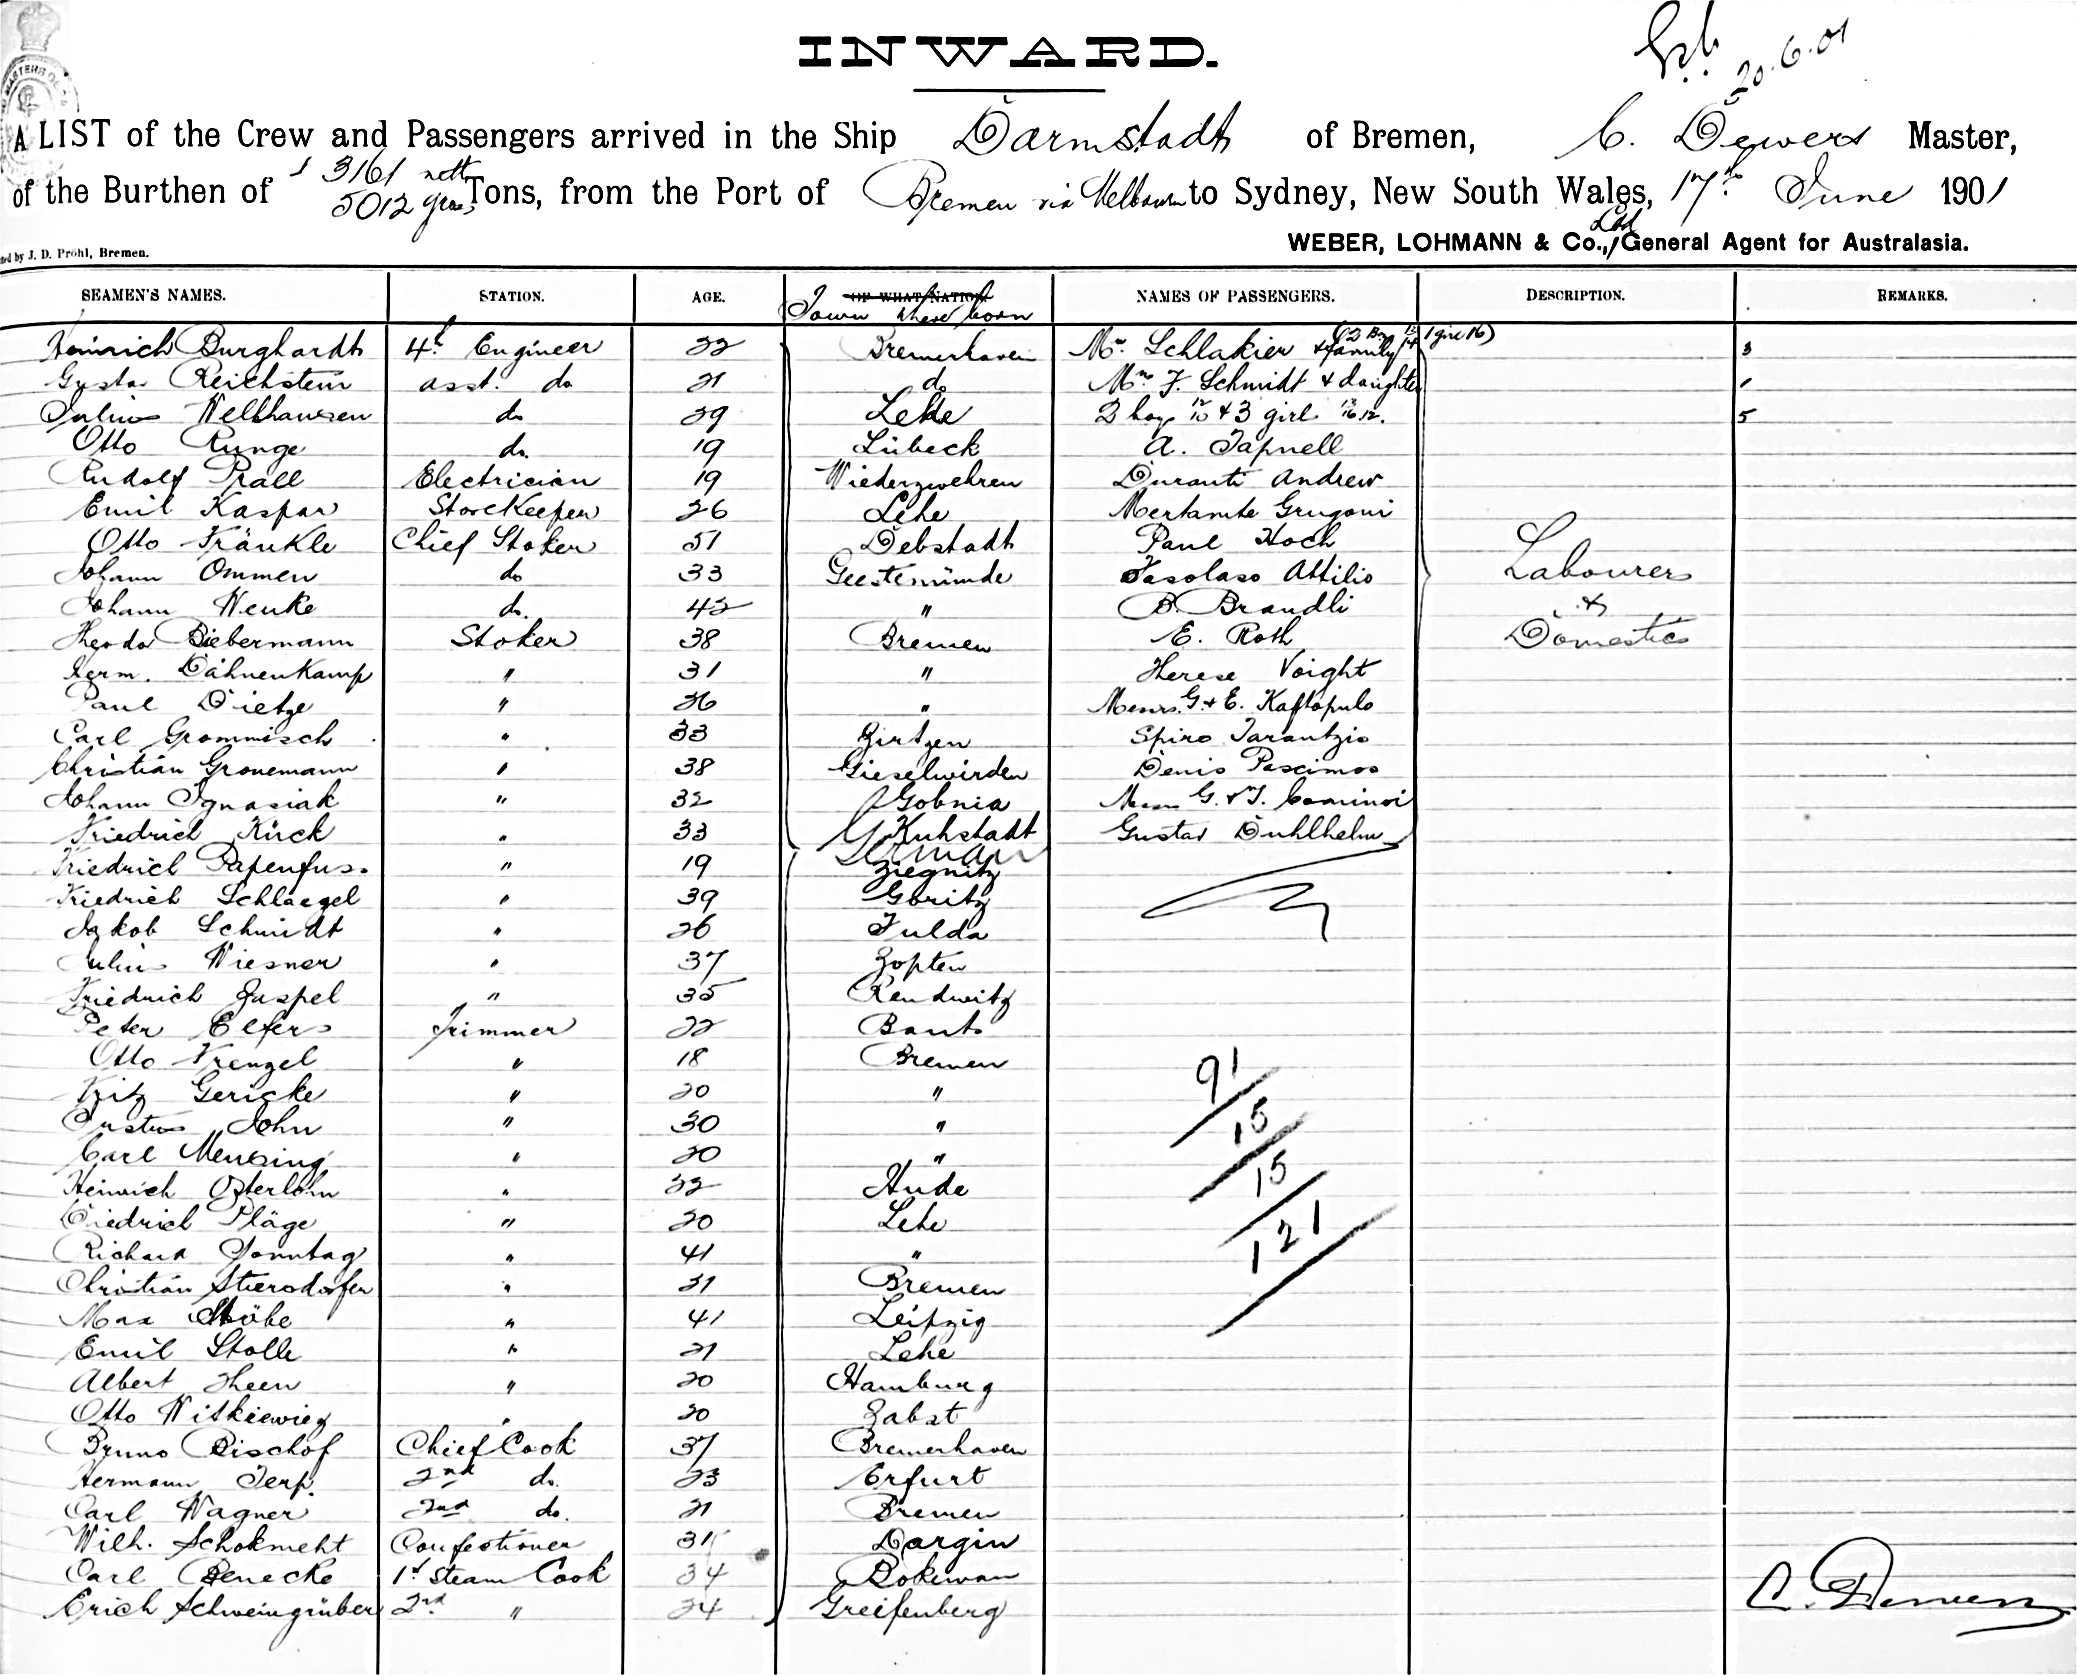 INWARD.
20.6.01
A LIST of the Crew and Passengers arrived in the Ship Darmstadt of Bremen, C. Dewers Master,
of the Burthen of 3161 nett 5012 gross Tons, from the Port of Bremen via Melbourne to Sydney, New South Wales, 17th June 1901
WEBER, LOHMANN & Co., Ltd General Agent for Australasia.
by J. D. Pröhl, Bremen.
SEAMEN'S NAMES. STATION. AGE. OF WHAT NATION. Town where born NAMES OF PASSENGERS. DESCRIPTION. REMARKS.
Heinrich Burghardt 4th Engineer 22 Bremerhaven Mr. Schlakier & family (2 Boy 1 girl 16) 3
Gustav Reichstein asst. do 21 do Mrs. F. Schmidt & daughter 1
Julius Wellhausen do 29 Lehe 2 boy 12 10 & 3 girl 13 16 12. 5
Otto Runge do. 19 Lübeck A. Tapnell
Rudolf Prall Electrician 19 Niederzwehren Duranti Andrew
Emil Kaspar Storekeeper 26 Lehe Mertante Grugoni
Otto Fränkle Chief Stoker 51 Debstadt Paul Hoch
Johann Ommen do 33 Geestemünde Fasolaso Attilio Labourers
Johann Wenke do. 42 " B. Brandli &
Theodor Biebermann Stoker 38 Bremen E. Roth Domestics
Herm. Dähnenkamp " 31 " Herese Voight
Paul Dietze " 26 " Messrs. G. & E. Kaftopulo
Carl Grommisch " 33 Zirtzen Spiro Tarantzio
Christian Gronemann " 38 Gieselwirden Denis Pascimos
Johann Ignasiak " 32 Gobnia Messrs G. & J. Cominoi
Friedrich Kück " 33 Kuhstadt Gustav Duhlhelm
German
Friedrich Papenfus. " 19 Ziegnitz
Friedrich Schlaegel " 39 Goritz
Jakob Schmidt " 26 Fulda
Julius Wiesner " 37 Zopten
Friedrich Zaspel " 35 Rendwitz
Peter Elfers Trimmer 22 Bant
Otto Frenzel " 18 Bremen
Fritz Gericke " 20 "
Gustav John " 30 "
Carl Mensing " 20 "
Heinrich Osterlohn " 32 Hude
Diedrich Pläge " 20 Lehe
Richard Sonntag " 41 "
Christian Stiersdorfer " 31 Bremen
Max Stöbe " 41 Leipzig
Emil Stolle " 21 Lehe
Albert Theen " 20 Hamburg
Otto Witkiewicz " 20 Zabst
Bruno Bischof Chief Cook 37 Bremerhaven
Hermann Terp. 2nd do. 23 Erfurt
Carl Wagner 2nd do. 21 Bremen
Wilh. Schokneht Confectioner 31 Dargin
Carl Benecke 1st Steam Cook 34 Bokewan
Erich Schweingrüber 2nd " 24 Greifenberg
91
15
15
121
C. Dewers